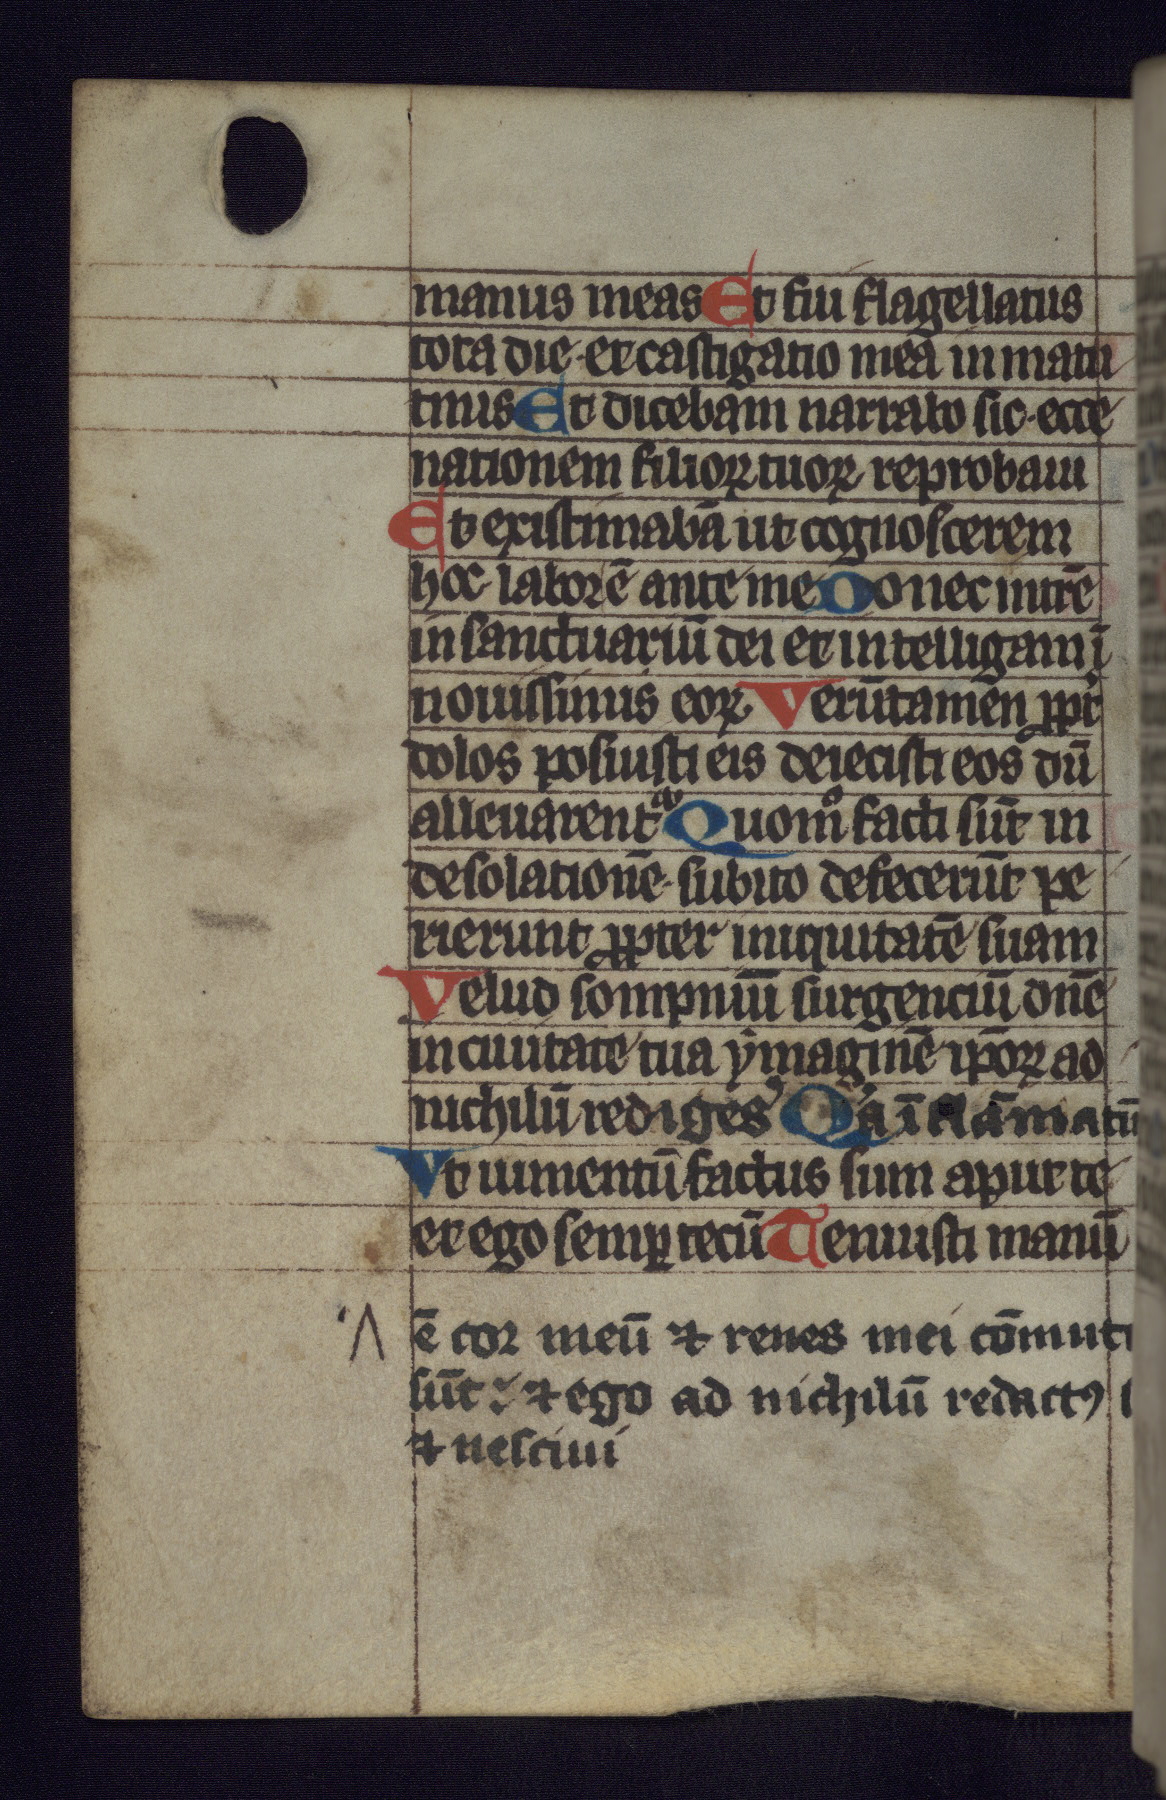 manus meas Et fui flagellatus
tota die · et castigatio mea in matu
tinis Et dicebam narrabo sic · ecce
nationem filioꝝ tuoꝝ reprobaui
Et existimabā ut cognoscerem
hoc laborē ante me Donec intrē
in sanctuariū dei et intelligam ī
nouissimis eoꝝ Verūtamen ꝓpt̄
dolos posuisti eis deiecisti eos dū
alleuarent᷒ Quom̊ facti sūt in
desolationē · subito defecerūt pe
rierunt ꝓpter iniquitatē suam
Velud sompniū surgenciū dn̄e
in ciuitate tua ẏmaginē ip̄oꝝ ad
nichilū rediges Qͥa īflāmatū
Vt iumentū factus sum aput te
et ego semꝑ tecū Tenuisti manū
ē cor meū ⁊ renes mei cōmut
sūt : ⁊ ego ad nichilū redactꝯ
⁊ nesciui